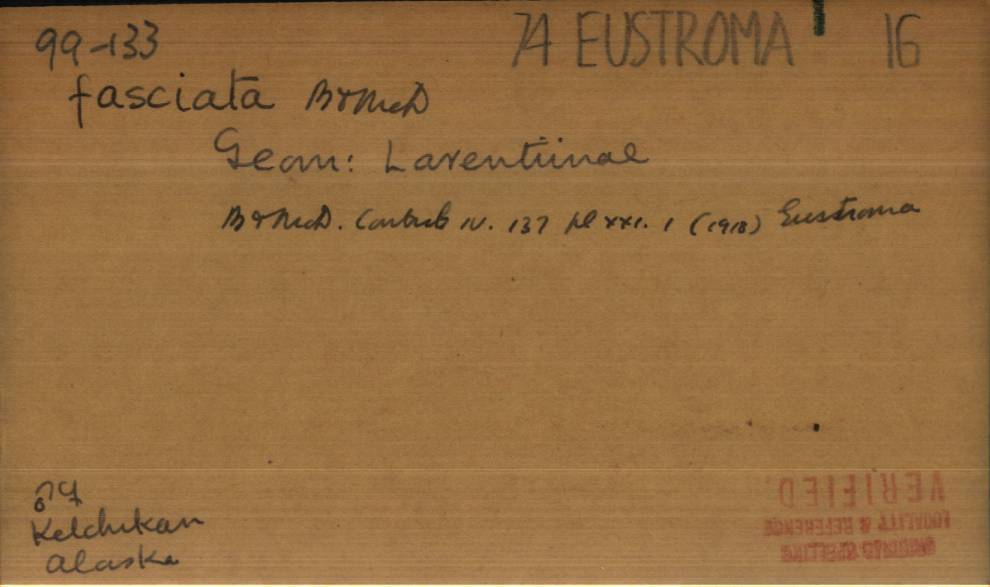 99-133 74 EUSTROMA 16
fasciata B&McD
Geom: Larentiinae
B&McD. Contrib IV. 137 pl xxi. 1 (1918) Eustroma
♂♀
Ketchikan
Alaska
VERIFIED
LOCALITY & REFERENCE
ORIGINAL SPELLING